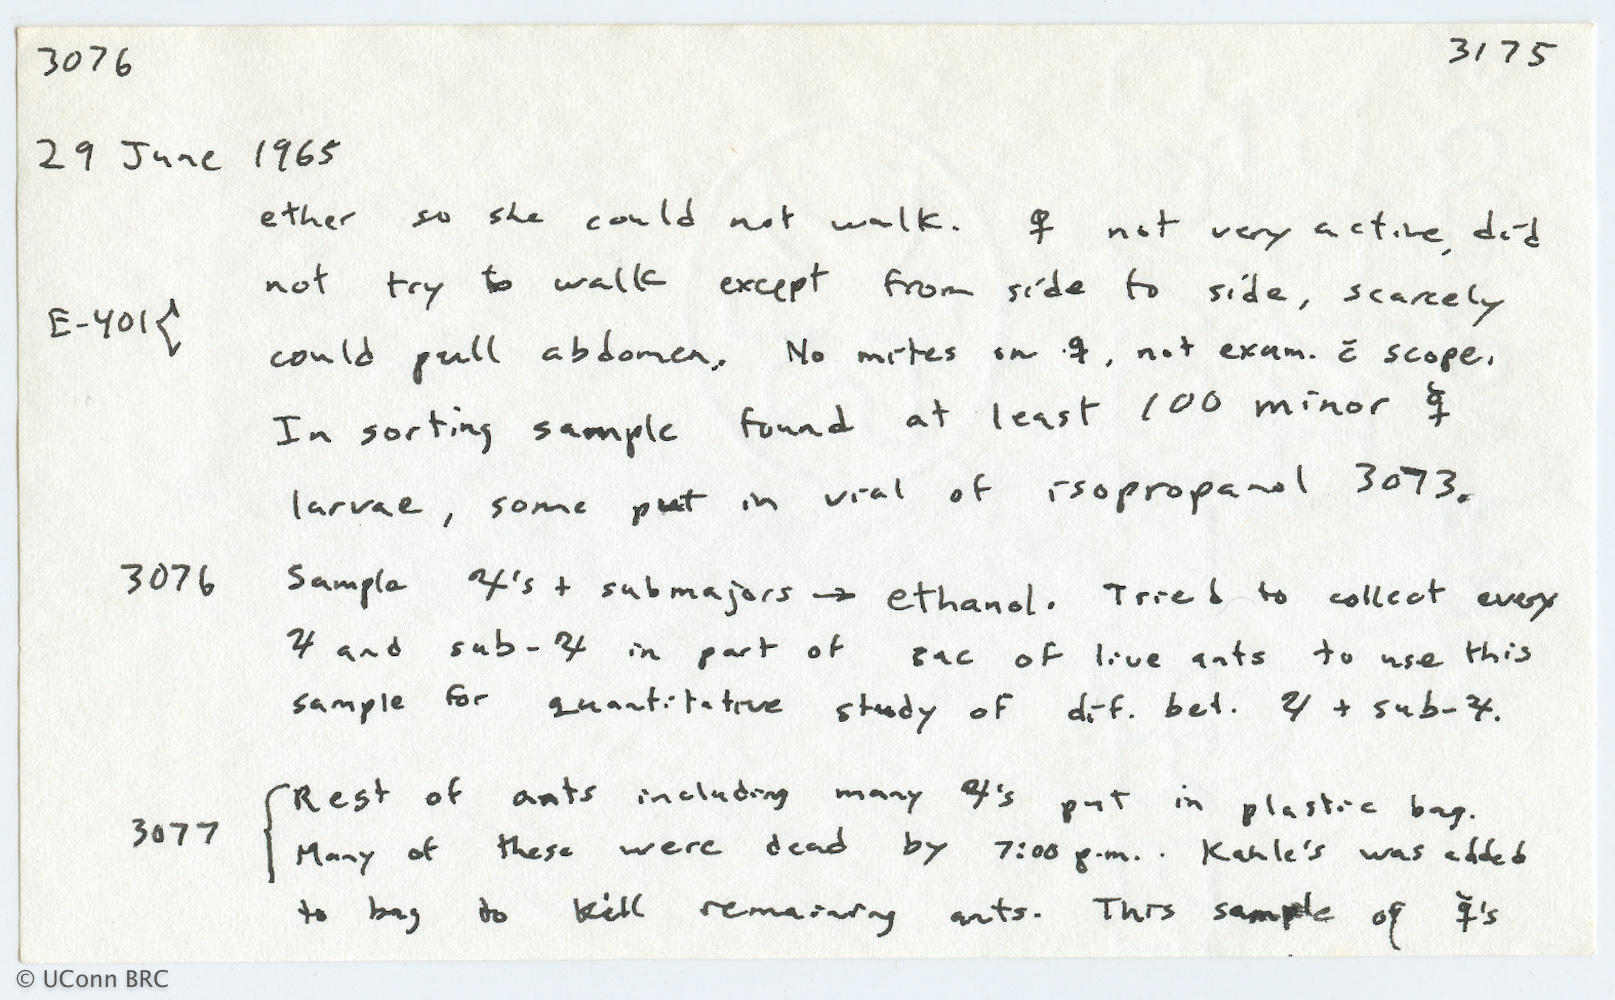 3076 3175
29 June 1965
ether so she could not walk. ♀ not very active, did
not try to walk except from side to side, scarcely
E-401{ could pull abdomen. No mites on ♀, not exam. c̄ scope.
In sorting sample found at least 100 minor ☿
larvae, some put in vial of isopropanol 3073.
3076 Sample ♃'s + submajors → ethanol. Tried to collect every
♃ and sub-♃ in part of sac of live ants to use this
sample for quantitative study of dif. bet. ♃ + sub-♃.
3077 { Rest of ants including many ♃'s put in plastic bag.
Many of these were dead by 7:00 p.m.. Kahle's was added
to bag to kill remaining ants. This sample of ☿'s
© UConn BRC